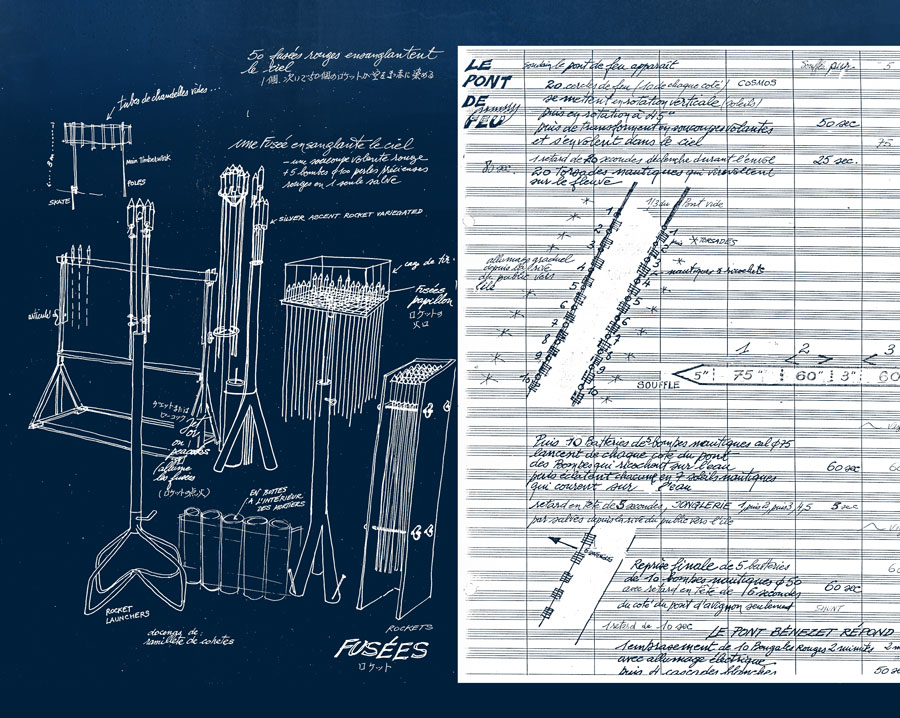 50 fusées rouges ensanglantent
le ciel
tubes de chandelles vides...
une Fusée ensanglante le ciel
- une soucoupe volante rouge
rouge en 1 seule salve
SKATE
POLES
SILVER ASCENT ROCKET VARIEGATED
cage de tir
Fusées
papillon
ロケットの
火口
articulé
allume
les fusées
(ロケットの点火)
EN BOTTES
A L'INTÉRIEUR
DES MORTIERS
ROCKET
LAUNCHERS
docenas de
ramillete de cohetes
ROCKETS
FUSÉES
ロケット
LE
PONT
DE
FEU
soudain le pont de feu apparaît
20 cercles de feu (10 de chaque coté) COSMOS
se mettent en rotation verticale (soleils)
puis en rotation à 45°
puis se transforment en soucoupes volantes
et s'envolent dans le ciel
50 sec
75
1 retard de 20 secondes déclenche durant l'envol
25 sec.
80 sec.
20 Torsades nautiques qui virevoltent
sur le fleuve
1/3 du Pont vide
TORSADES
nautiques à ricochets
allumage graduel
depuis la rive
du public vers
l'île
1 2 3 4 5 6 7 8 9 10
1 2 3 4 5 6 7 8 9 10
1 2 3
SOUFFLE
5" 75" 60" 3" 60
Puis 10 Batteries de 5 bombes nautiques cal φ75
lancent de chaque coté du pont
des Bombes qui ricochent sur l'eau
60 sec
puis éclatent chacune en 7 soleils nautiques
qui courent sur l'eau
retard en tête de 5 secondes, JONGLERIE 1 puis 2, puis 3, 4, 5
5 sec
par salves depuis la rive du public vers l'île
Reprise finale de 5 batteries
de 10 bombes nautiques φ 50
avec retard en Tête de 16 secondes
60 sec
du coté du pont d'avignon seulement
SHUNT
1 retard de 10 sec
LE PONT BÉNEZET RÉPOND
1 embrasement de 10 Bengales Rouges 2 minutes
avec allumage électrique
puis 4 cascades blanches
50 sec